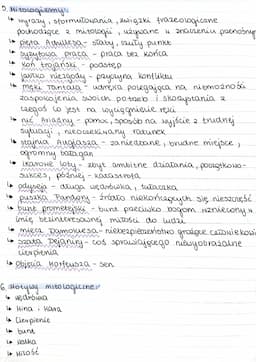 5. Mitologizmy:
↳ wyrazy, sformułowania, związki frazeologiczne
pochodzące z mitologii, używane w znaczeniu przenośnym
↳ pięta Achillesa - słaby, czuły punkt
↳ syzyfowa praca - praca bez końca
↳ koń trojański - podstęp
↳ jabłko niezgody - przyczyna konfliktu
↳ męki Tantala - udręka polegająca na niemożności
zaspokojenia swoich potrzeb i skorzystania z
czegoś co jest na wyciągnięcie ręki
↳ nić Ariadny - pomoc, sposób na wyjście z trudnej
sytuacji, nieoczekiwany ratunek
↳ stajnia Augiasza - zaniedbane, brudne miejsce,
ogromny bałagan
↳ ikarowe loty - zbyt ambitne działania, początkowo-
sukces, później - katastrofa
↳ odyseja - długa wędrówka, tułaczka
↳ puszka Pandory - źródło niekończących się nieszczęść
↳ bunt prometejski - bunt przeciwko bogom wzniecony w
imię bezinteresownej miłości do ludzi
↳ miecz Damoklesa - niebezpieczeństwo grożące człowiekowi
↳ szata Dejaniry - coś sprawiającego niewyobrażalne
cierpienia
↳ objęcia Morfeusza - sen
6. Motywy mitologiczne:
↳ wędrówka
↳ wina i kara
↳ cierpienie
↳ bunt
↳ walka
↳ miłość